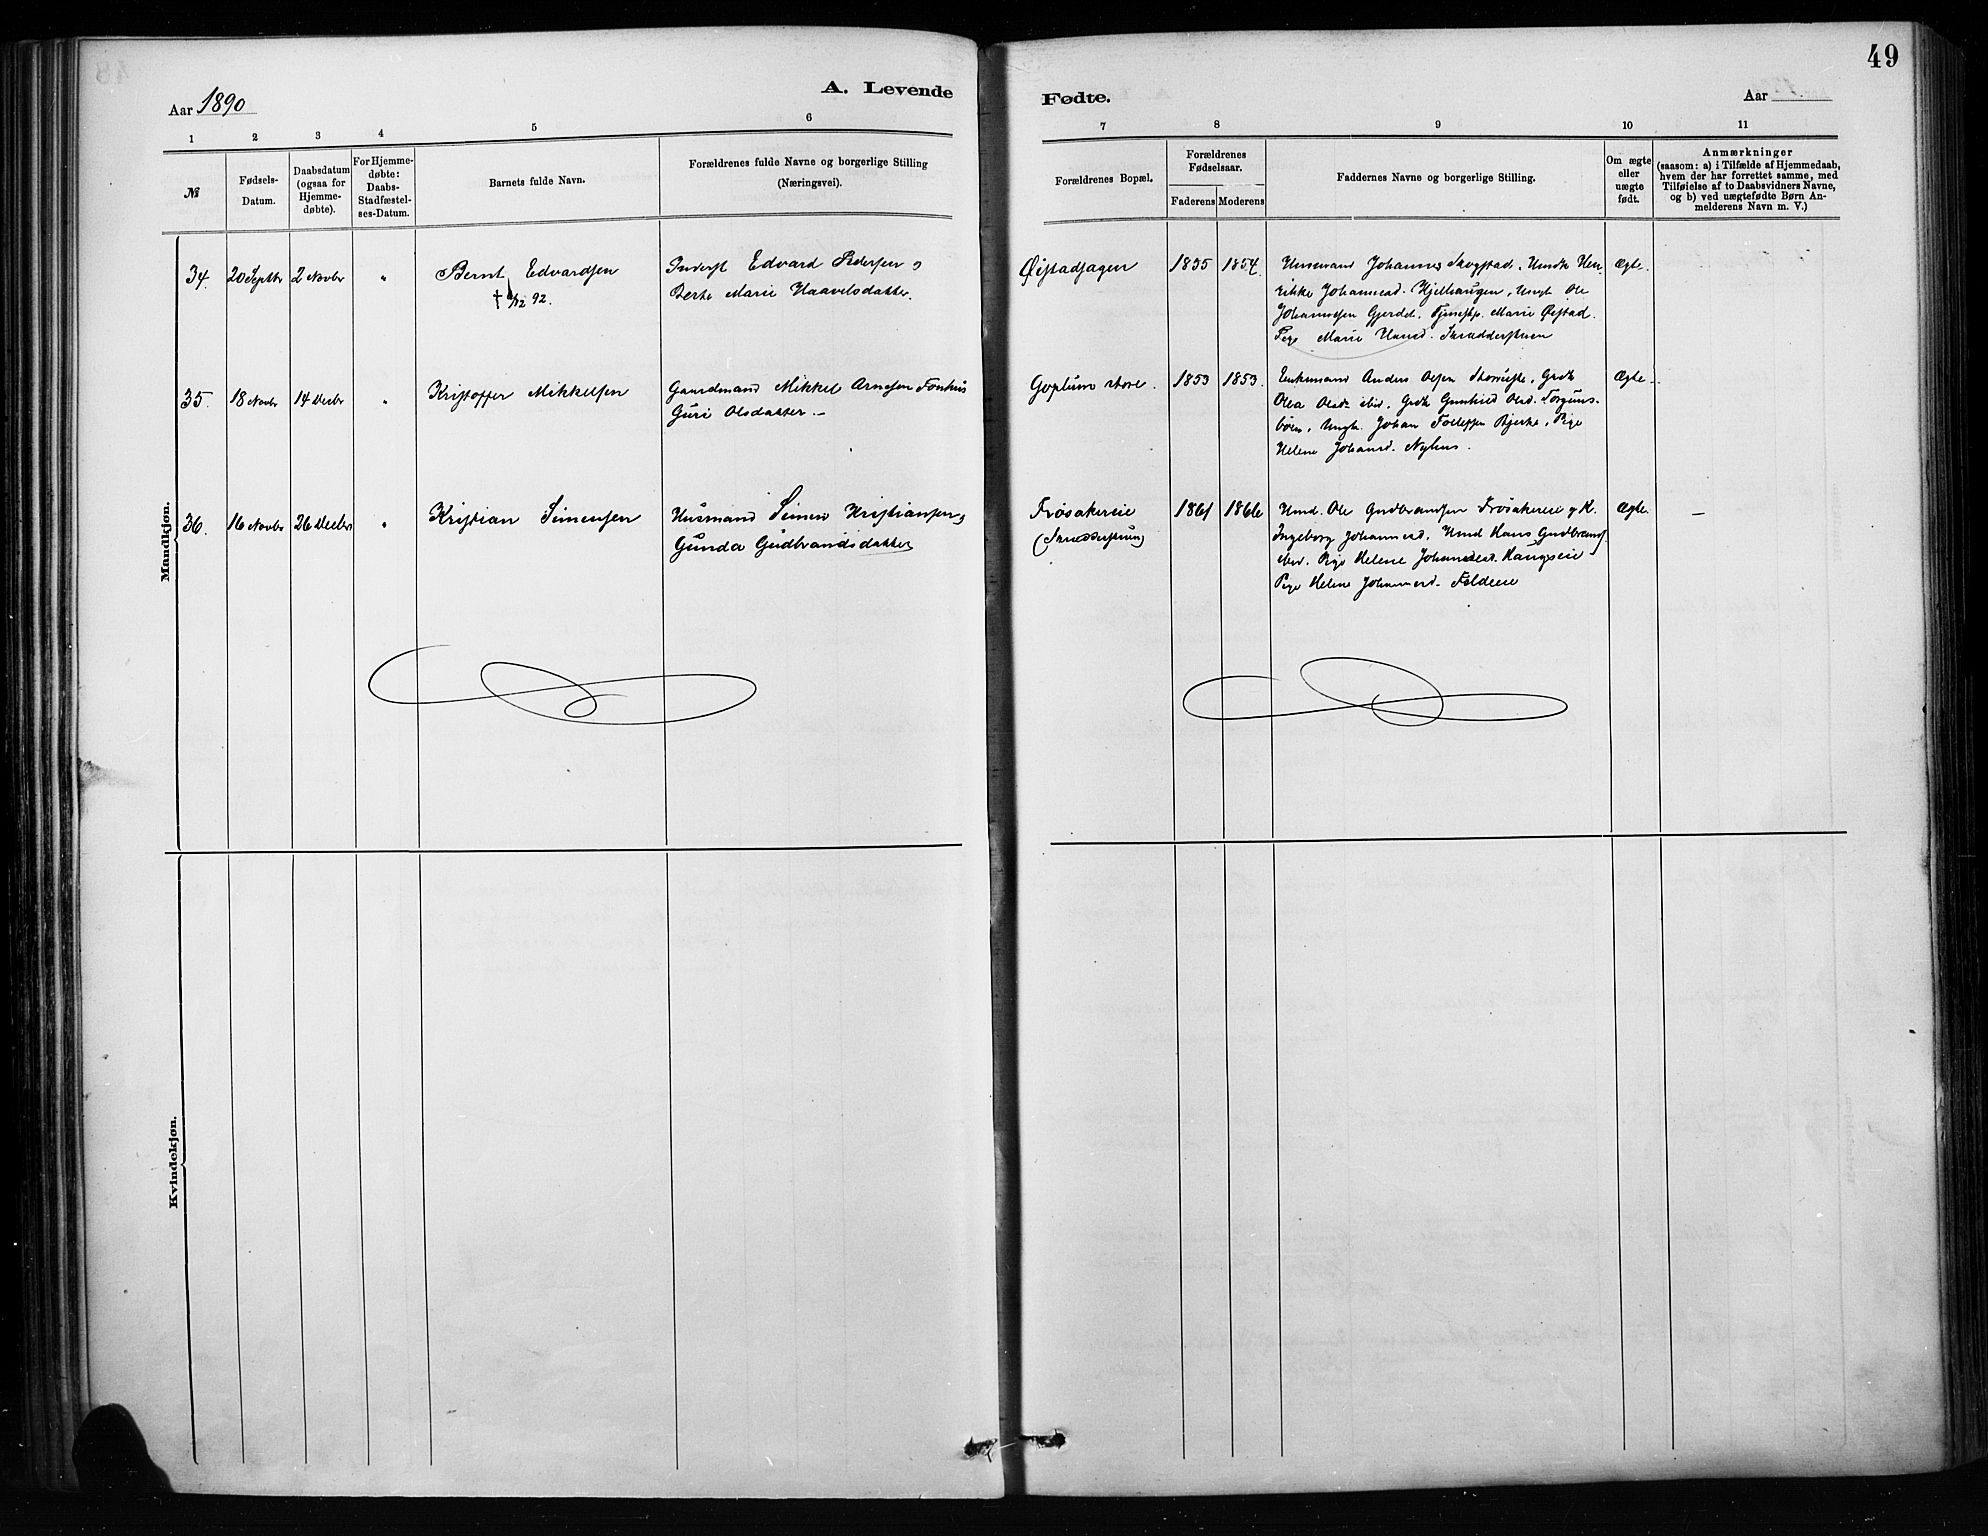 49
A. Levende
Fødte.
Aar 1890
Aar
1 2 3 4 5 6
7 8 9 10 11
№
Fødsels-
Datum.
Daabsdatum
(ogsaa for
Hjemme-
døbte).
For Hjemme-
døbte:
Daabs-
Stadfæstel-
ses-Datum.
Barnets fulde Navn.
Forældrenes fulde Navne og borgerlige Stilling
(Næringsvei).
Forældrenes Bopæl.
Forældrenes
Fødselsaar.
Faderens Moderens
Faddernes Navne og borgerlige Stilling.
Om ægte
eller
uægte
født.
Anmærkninger
(saasom: a) i Tilfælde af Hjemmedaab,
hvem der har forrettet samme, med
Tilføielse af to Daabsvidners Navne,
og b) ved uægtefødte Børn An-
melderens Navn m. V.)
Mandkjøn.
34. 20 Septbr 2 Novbr " Bernt Edvardsen
† 92.
Inderst Edvard Pedersen og
Berte Marie Haavelsdatter.
Øistadjagen 1855 1854.
Johannes Skogstad.
Johannesd. Hjelhaugen, Ungk Ole
Johannesen Gjerdet. Marie Øistad.
Pige Marie Hansd. Skrædderstuen
Ægte.
35. 18 Novbr 14 Decbr " Kristoffer Mikkelsen
Gaardmand Mikkel Arnesen Fønhus
Guri Olsdatter.
Goplum store. 1853 1853.
Enkemand Anders Olsen
Olea Olsd. ibid. Gunhild Olsd.
Ungk. Johan Bjerke, Pige
Helene Johansd. Nyhus.
Ægte.
36. 16 Novbr 26 Decbr " Kristian Simensen
Husmand Simen Kristiansen og
Gunda Gudbrandsdatter
Frøsakereie
(Skrædderstuen)
1861 1866
Husmd. Ole Gudbrandsen Frøsakereie og K.
Ingeborg Johannesd. Husmd Hans Gudbrands.
ibid. Pige Helene Johannesd. Haugseie
Pige Helene Johannesd. Feldeie
Ægte. —
Kvindekjøn.